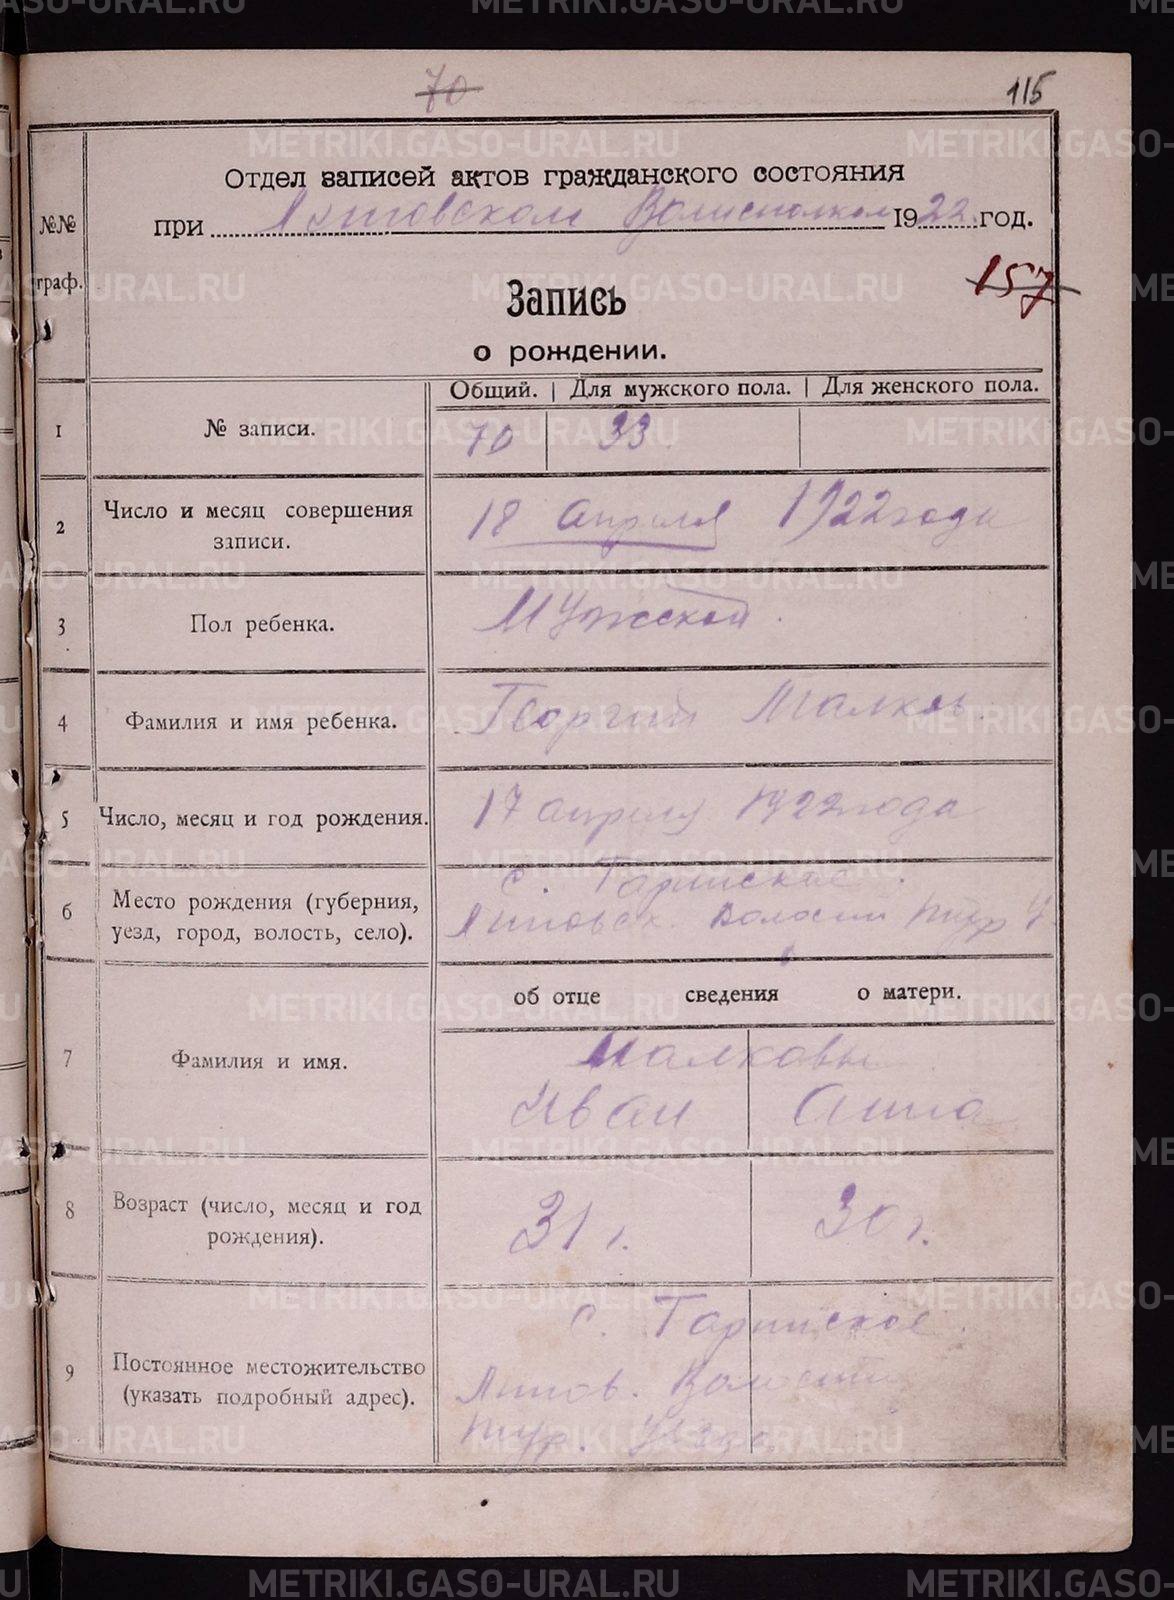 70
115
Отдел записей актов гражданского состояния
при Липовском Волисполком 1922 год.
№№
граф.
157
Запись
о рождении.
Общий. Для мужского пола. Для женского пола.
1 № записи. 70 33
2 Число и месяц совершения записи. 18 апреля 1922 года
3 Пол ребенка. Мужской.
4 Фамилия и имя ребенка. Георгий Малков.
5 Число, месяц и год рождения. 17 апреля 1922 года
6 Место рождения (губерния, уезд, город, волость, село). с.
Липовск. Волости Тюр У.
об отце сведения о матери.
7 Фамилия и имя. Малковы
Иван Анна
8 Возраст (число, месяц и год рождения). 31 г. 30 г.
9 Постоянное местожительство (указать подробный адрес). с.
Липов. Волости
Тюр. Уезда
METRIKI.GASO-URAL.RU